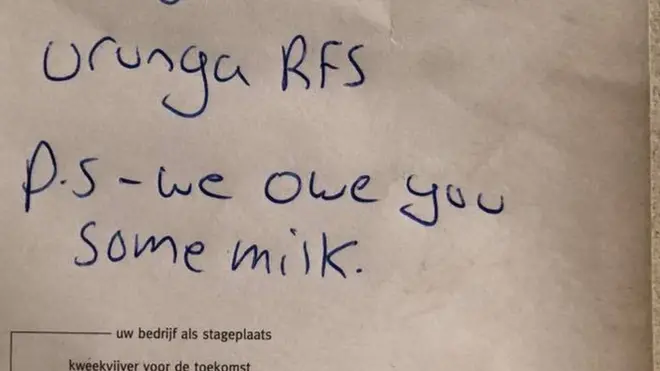 Urunga RFS
P.S - we owe you
some milk.
uw bedrijf als stageplaats
kweekvijver voor de toekomst